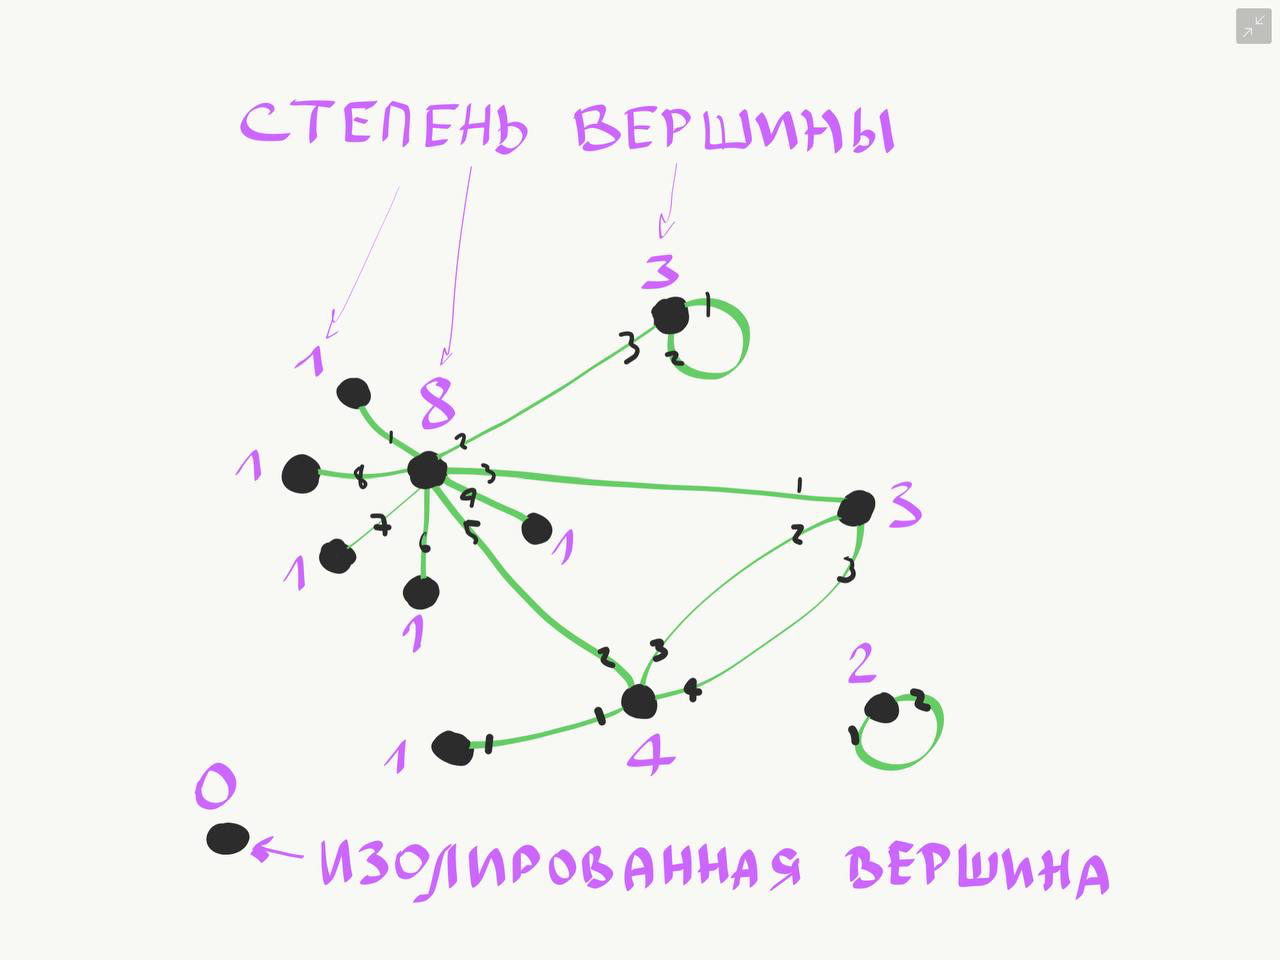 СТЕПЕНЬ ВЕРШИНЫ
3
1
1
8
2
3
1
2
1
8
1
8
3
1
3
7
6
4
5
1
2
3
1
1
1
2
3
2
4
2
1
1
1
4
1
0
ИЗОЛИРОВАННАЯ ВЕРШИНА